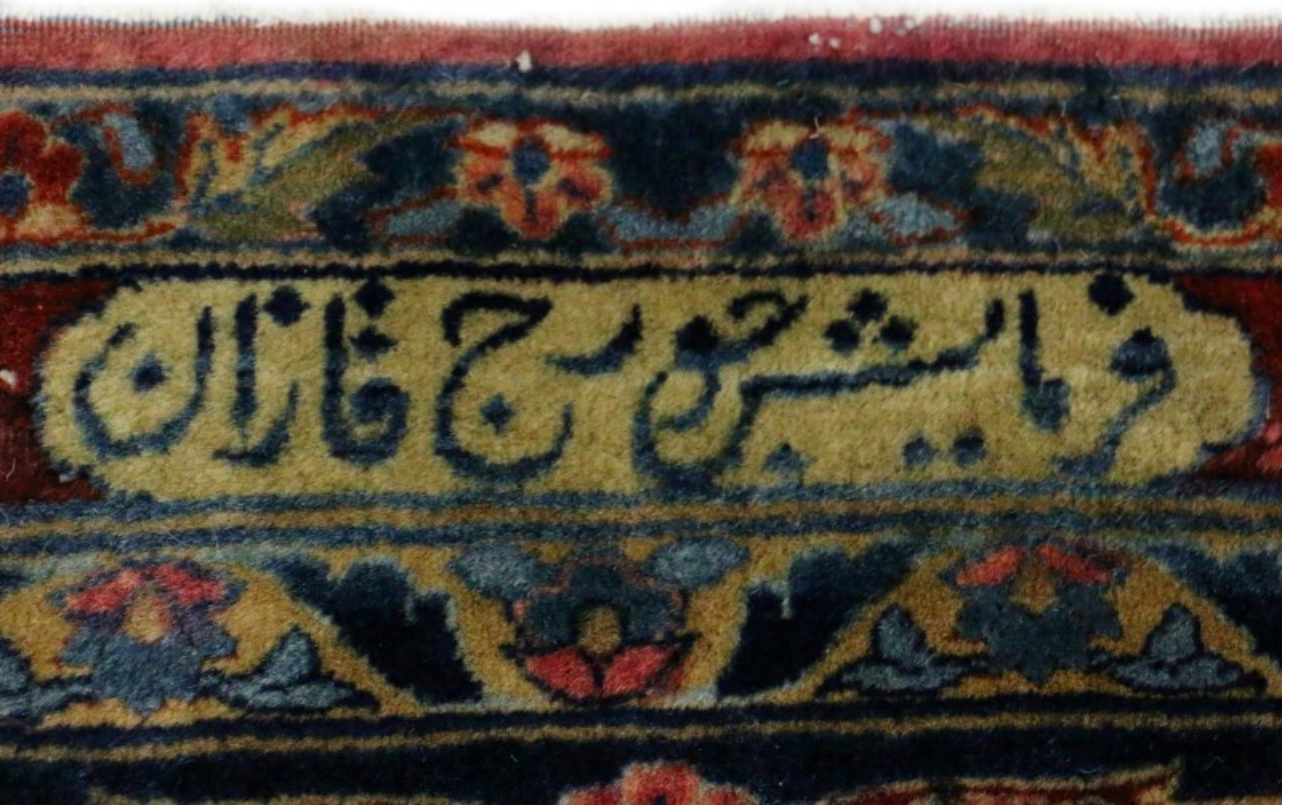 فرمایش جورج قازان